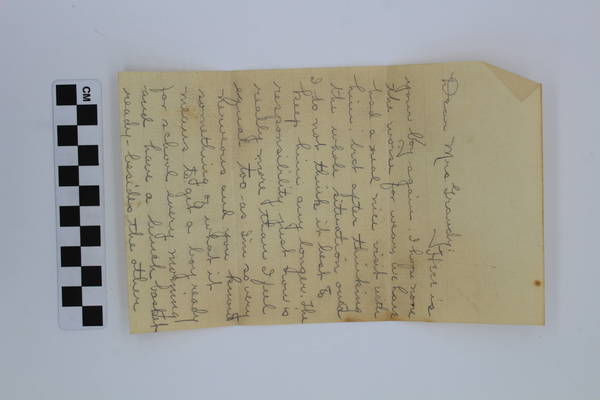 Dear Mrs Grundy;
Here is
your boy again. I hope none
the worse for wear. We have
had a real nice visit with
him but after thinking
the whole situation out
I do not think it best to
keep him any longer. The
responsibility just now is
really more than I feel
equal too - as I'm so very
nervous and you know
something of what it
means to get a boy ready
for school every morning
and have a lunch basket
ready - besides the other
CM